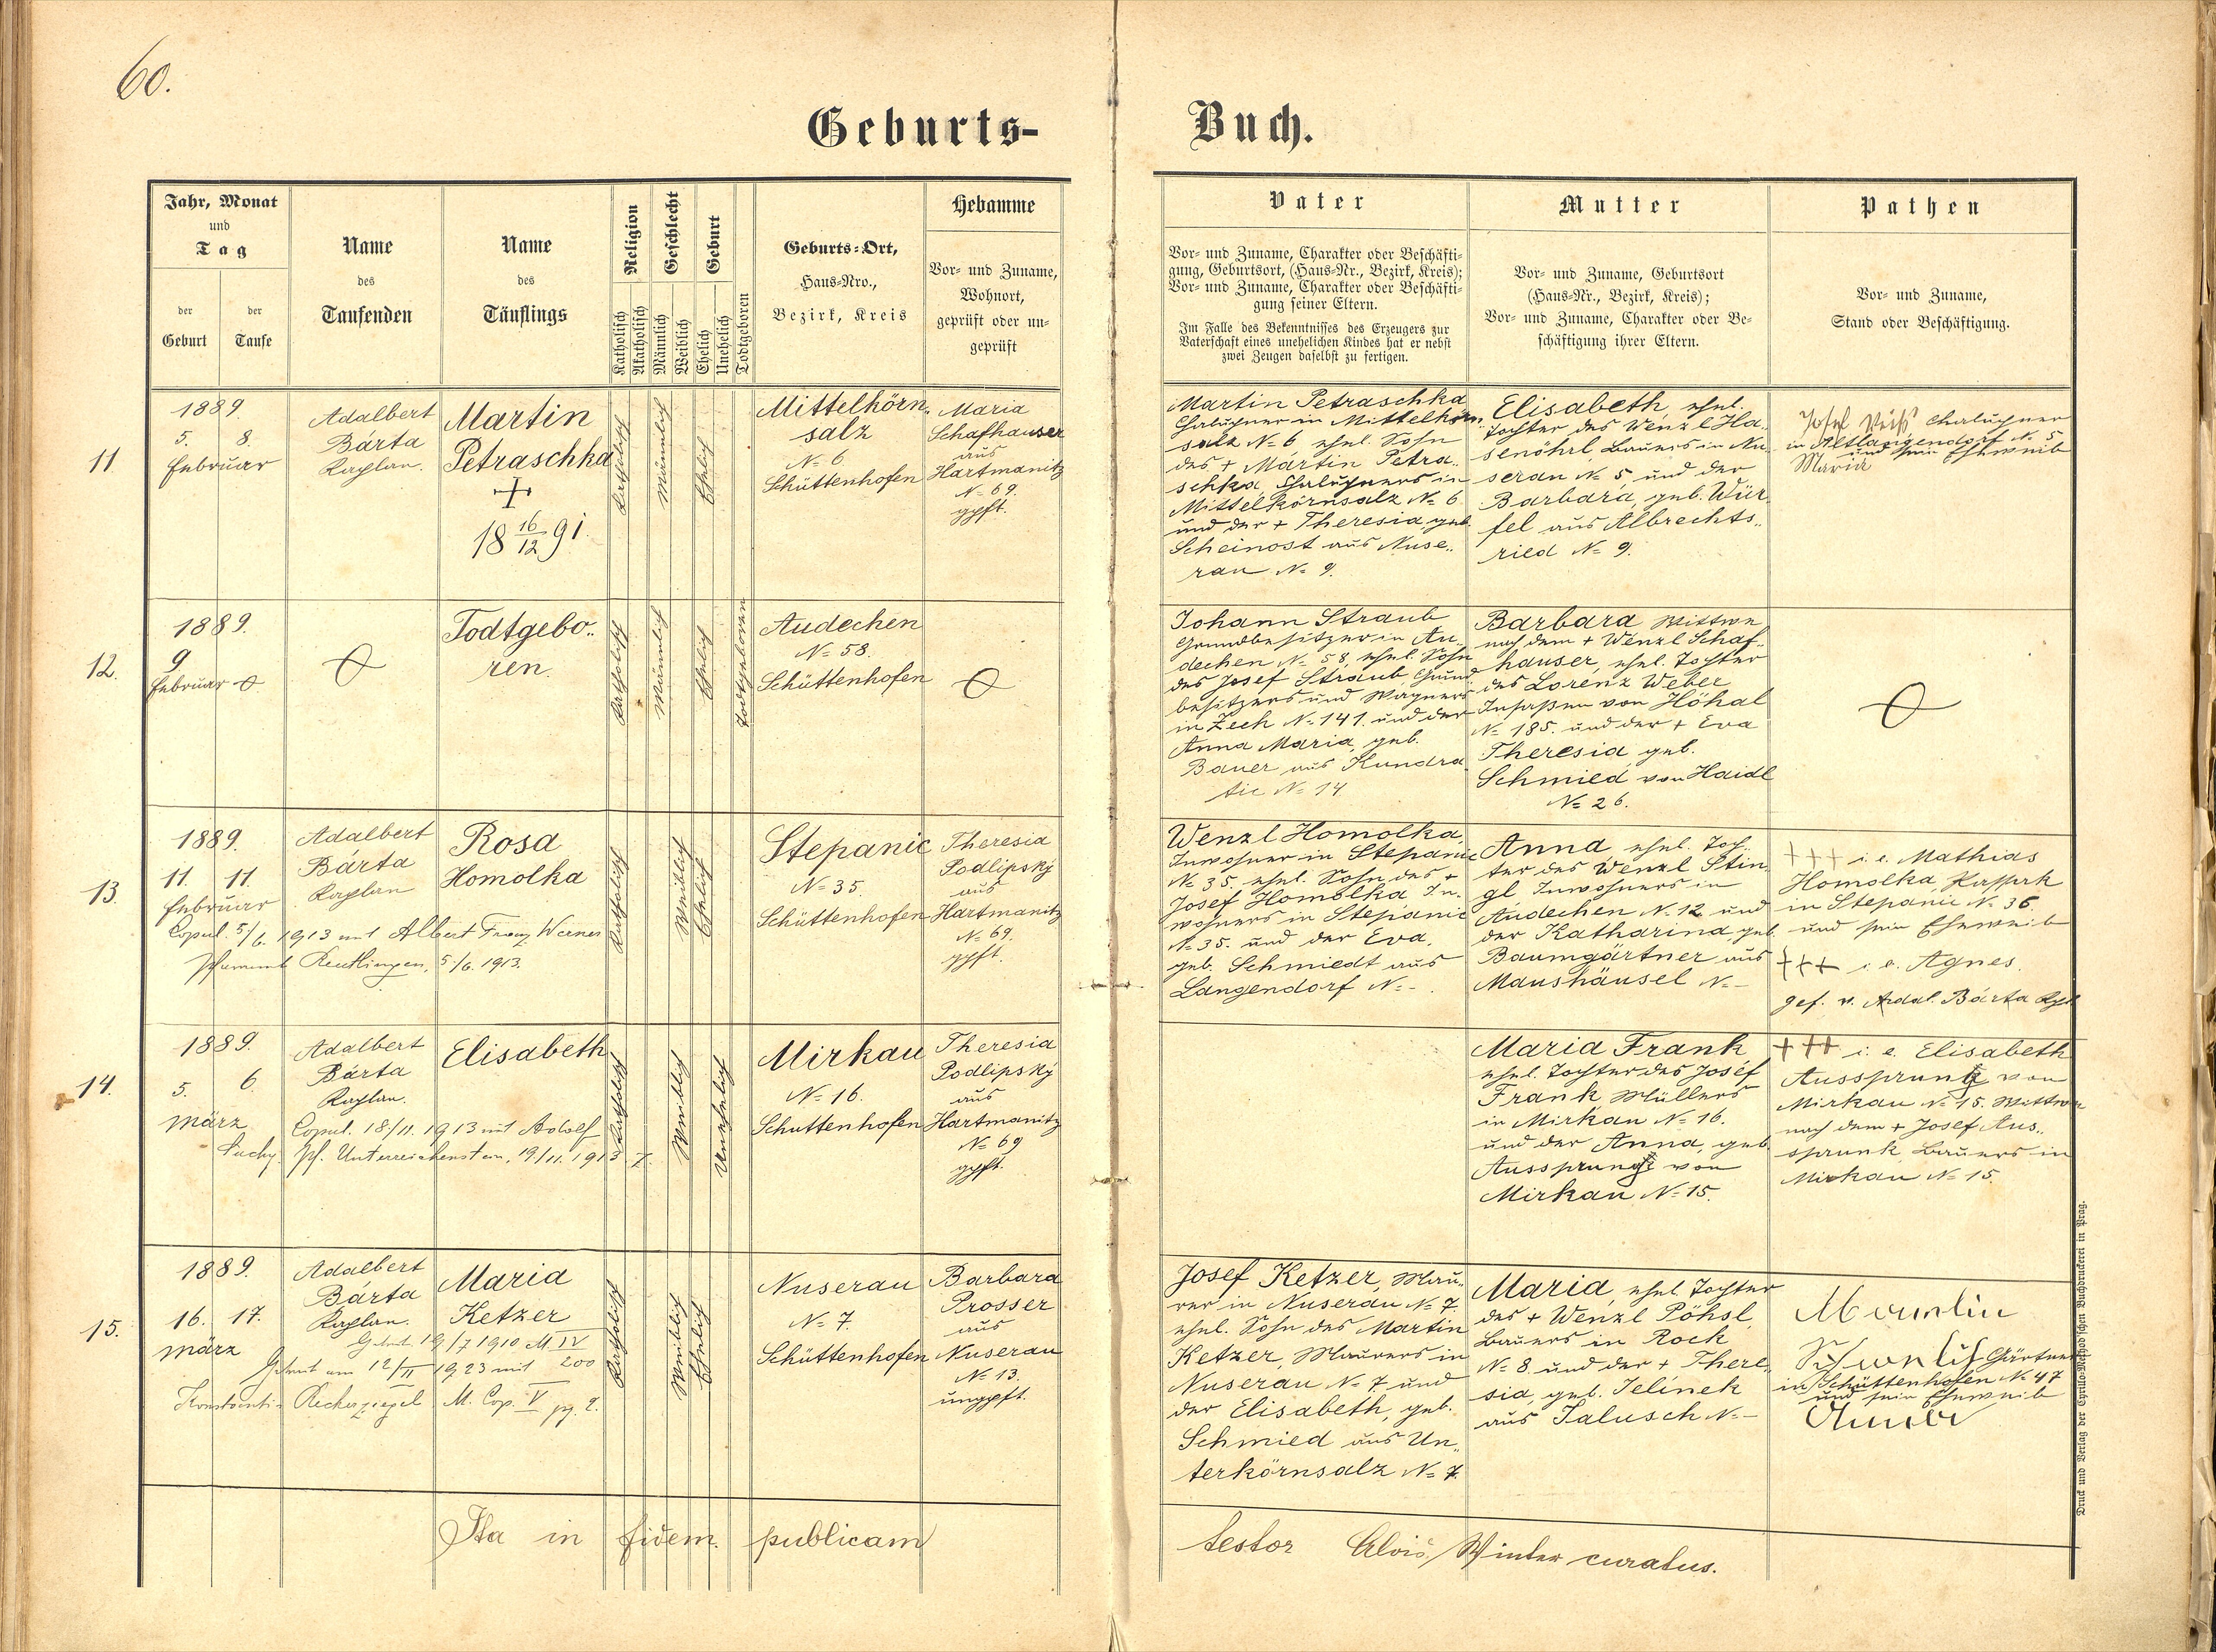 60.
Geburts-Buch.
Jahr, Monat
und
Tag
der
Geburt
der
Taufe
Name
des
Taufenden
Name
des
Täuflings
Religion
Katholisch
Akatholisch
Geschlecht
Männlich
Weiblich
Geburt
Ehelich
Unehelich
Todtgeboren
Geburts-Ort,
Haus-Nro.,
Bezirk, Kreis
Hebamme
Vor- und Zuname,
Wohnort,
geprüft oder un-
geprüft
Vater
Vor- und Zuname, Charakter oder Beschäfti-
gung, Geburtsort, (Haus-Nr., Bezirk, Kreis);
Vor- und Zuname, Charakter oder Beschäfti-
gung seiner Eltern.
Im Falle des Bekenntnisses des Erzeugers zur
Vaterschaft eines unehelichen Kindes hat er nebst
zwei Zeugen daselbst zu fertigen.
Mutter
Vor- und Zuname, Geburtsort
(Haus-Nr., Bezirk, Kreis);
Vor- und Zuname, Charakter oder Be-
schäftigung ihrer Eltern.
Pathen
Vor- und Zuname,
Stand oder Beschäftigung.
11.
1889.
5. 8.
Februar
Adalbert
Bárta
Kaplan.
Martin
Petraschka
+
18 16/12 91
Katholisch
Männlich
Ehelich
Mittelkörn„
salz
N= 6
Schüttenhofen
Maria
Schafhauser
aus
Hartmanitz
N= 69.
gpft.
Martin Petraschka
Chalupner in Mittelkörn„
salz N= 6 ehel. Sohn
des + Martin Petra„
schka, Chalupners in
Mittelkörnsalz N= 6
und der + Theresia, geb.
Scheinost aus Nuse„
rau N= 9.
Elisabeth, ehel.
Tochter des Wenzl Ha„
senöhrl, Bauers in Nu„
serau N= 5, und der
Barbara, geb. Wür„
fel aus Albrechts„
ried N= 9.
Josef Weiß Chalupner
in Altlangendorf N= 5
und sein Eheweib
Maria
12.
1889.
9
Februar
Todtgebo„
ren.
Katholisch
Männlich
Ehelich
Todtgeboren
Audechen
N= 58.
Schüttenhofen
Johann Straub
Grundbesitzer in Au„
dechen N= 58, ehel. Sohn
des Josef Straub Grund„
besitzers und Wagners
in Zech N= 141. und der
Anna Maria, geb.
Bauer aus Kundra
tic N= 14.
Barbara Wittwe
nach dem + Wenzl Schaf„
hauser, ehel. Tochter
des Lorenz Weber
Insaßen von Höhal
N= 185. und der + Eva
Theresia geb.
Schmied von Haidl
N= 26.
13.
1889.
11. 11.
Februar
Adalbert
Bárta
Kaplan
Rosa
Homolka
Copul. 5/6. 1913 mit Albert Franz Werner
Pfarramt Reutlingen, 5./6. 1913.
Katholisch
Weiblich
Ehelich
Stepanic
N= 35.
Schüttenhofen
Theresia
Podlipský
aus
Hartmanitz
N= 69.
gpft.
Wenzl Homolka,
Inwohner in Stepanic
N= 35, ehel. Sohn des +
Josef Homolka In„
wohners in Stepanic
N= 35. und der Eva,
geb. Schmiedt aus
Langendorf N= -
Anna ehel. Toch„
ter des Wenzl Stin„
gl Inwohners in
Audechen N. 12 und
der Katharina, geb.
Baumgärtner aus
Maushäusel N= -
+++ i. e. Mathias
Homolka
in Stepanic N= 36
und sein Eheweib
+++ i. e. Agnes
gef. v. Adal. Bárta Kpl
14.
1889.
5. 6
März
Adalbert
Bárta
Kaplan.
Elisabeth
Copul. 18/11. 1913 mit Adolf
Suchy, Pf. Unterreichenstein, 19/11. 1913
Katholisch
Weiblich
Unehelich
Mirkau
N= 16.
Schüttenhofen
Theresia
Podlipský
aus
Hartmanitz
N= 69
gpft.
Maria Frank,
ehel. Tochter des Josef
Frank Müllers
in Mirkau N= 16.
und der Anna, geb.
Aussprung von
Mirkau N= 15.
+++ i. e. Elisabeth
Aussprung von
Mirkau N= 15. Wittwe
nach dem + Josef Aus„
sprunk, Bauers in
Mirkau N= 15.
15.
1889.
16. 17.
März
Adalbert
Bárta
Kaplan.
Maria
Ketzer
19/7 1910 M IV
200
Getraut am 12/II 1923 mit
Konstantin Recherziegel M. Cop. V pg. 2.
Katholisch
Weiblich
Ehelich
Nuserau
N= 7.
Schüttenhofen
Barbara
Prosser
aus
Nuserau
N= 13.
ungpft.
Josef Ketzer, Mau„
rer in Nuserau N= 7.
ehel. Sohn des Martin
Ketzer, Maurers in
Nuserau N= 7 und
der Elisabeth, geb.
Schmied aus Un„
terkörnsalz N= 7.
Maria, ehel. Tochter
des + Wenzl Pöhsl,
Bauers in Rock
N= 8 und der + There„
sia, geb. Jelínek
aus Jalusch N= -
Gärtner
in Schüttenhofen N= 47
und sein Eheweib
Ita in fidem publicam testor Alois Winter curatus.
Druck und Verlag der Cyrillo-Method'schen Buchdruckerei in Prag.